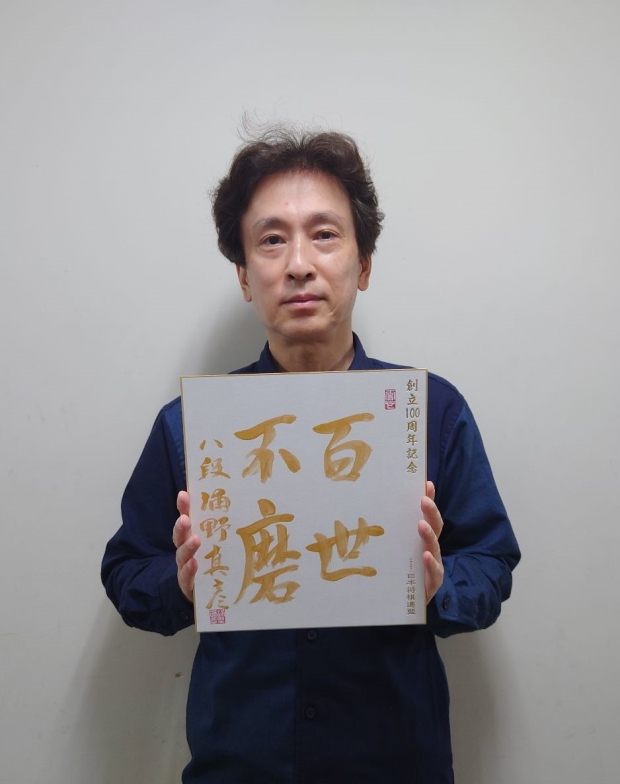 創立100周年記念
日本将棋連盟
百世
不磨
八段 浦野真彦